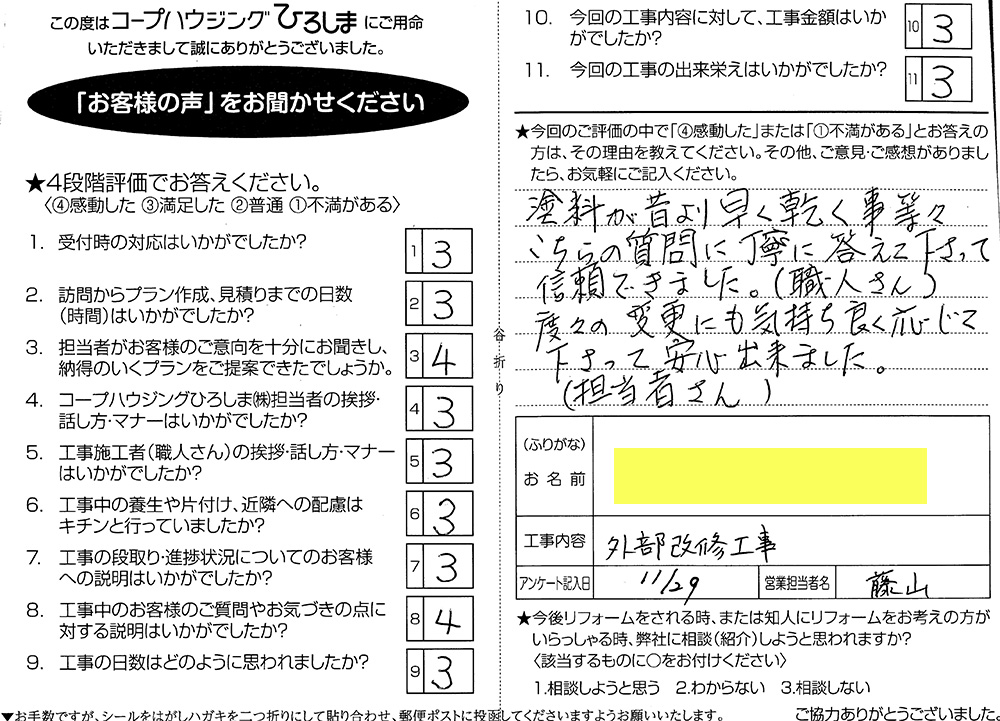 この度はコープハウジングひろしまにご用命
いただきまして誠にありがとうございました。
「お客様の声」をお聞かせください
★4段階評価でお答えください。
〈④感動した ③満足した ②普通 ①不満がある〉
1. 受付時の対応はいかがでしたか?
1 3
2. 訪問からプラン作成、見積りまでの日数
(時間)はいかがでしたか?
2 3
3. 担当者がお客様のご意向を十分にお聞きし、
納得のいくプランをご提案できたでしょうか。
3 4
4. コープハウジングひろしま㈱担当者の挨拶・
話し方・マナーはいかがでしたか?
4 3
5. 工事施工者(職人さん)の挨拶・話し方・マナー
はいかがでしたか?
5 3
6. 工事中の養生や片付け、近隣への配慮は
キチンと行っていましたか?
6 3
7. 工事の段取り・進捗状況についてのお客様
への説明はいかがでしたか?
7 3
8. 工事中のお客様のご質問やお気づきの点に
対する説明はいかがでしたか?
8 4
9. 工事の日数はどのように思われましたか?
9 3
谷折り
10. 今回の工事内容に対して、工事金額はいか
がでしたか?
10 3
11. 今回の工事の出来栄えはいかがでしたか?
11 3
★今回のご評価の中で「④感動した」または「①不満がある」とお答えの
方は、その理由を教えてください。その他、ご意見・ご感想がありまし
たら、お気軽にご記入ください。
塗料が昔より早く乾く事等々
こちらの質問に丁寧に答えて下さって
信頼できました。(職人さん)
度々の変更にも気持ち良く応じて
下さって安心出来ました。
(担当者さん)
(ふりがな)
お名前
工事内容 外部改修工事
アンケート記入日 11/29 営業担当者名 藤山
★今後リフォームをされる時、または知人にリフォームをお考えの方が
いらっしゃる時、弊社に相談(紹介)しようと思われますか?
〈該当するものに○をお付けください〉
1.相談しようと思う 2.わからない 3.相談しない
▼お手数ですが、シールをはがしハガキを二つ折りにして貼り合わせ、郵便ポストに投函してくださいますようお願いいたします。
ご協力ありがとうございました。